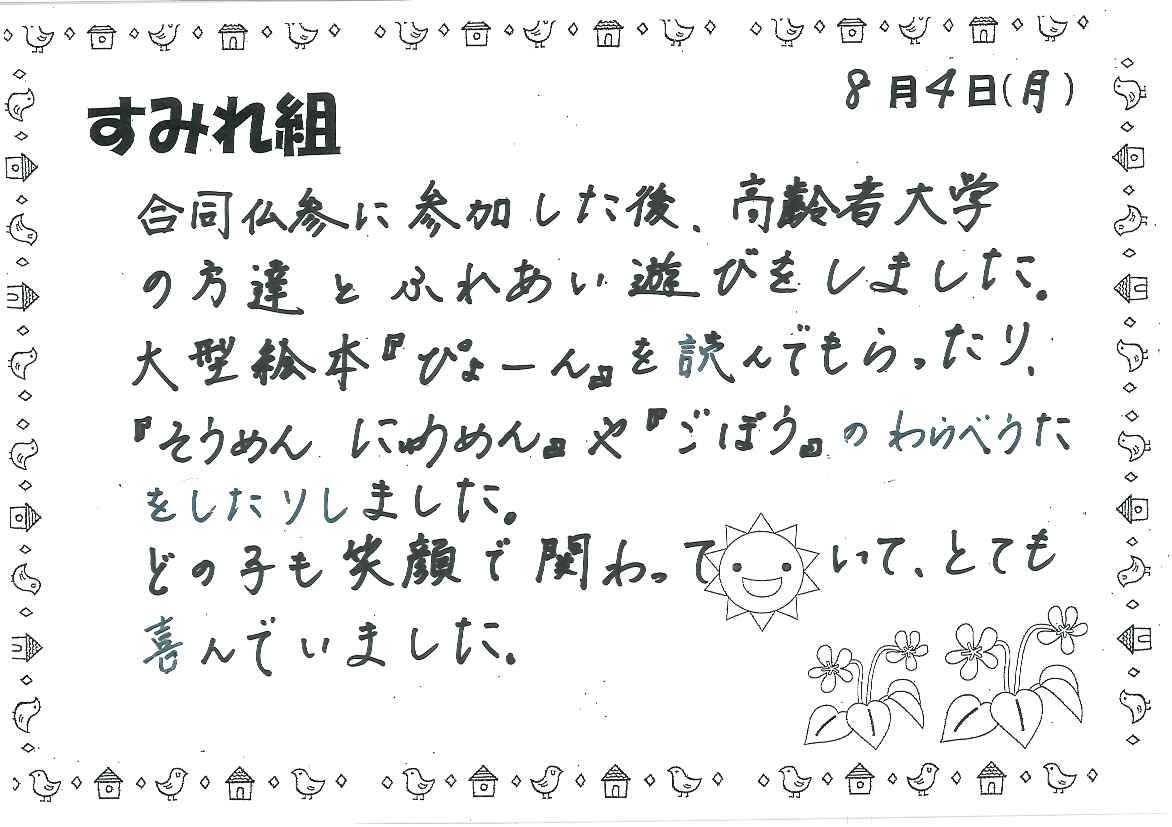 8月4日(月)
すみれ組
合同仏参に参加した後、高齢者大学
の方達とふれあい遊びをしました。
大型絵本『ぴょーん』を読んでもらったり、
『そうめん にゅうめん』や『ごぼう』のわらべうた
をしたりしました。
どの子も笑顔で関わって いて、とても
喜んでいました。